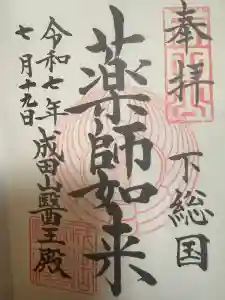 奉拝
下総国
薬師如来
令和七年
七月十九日
成田山醫王殿